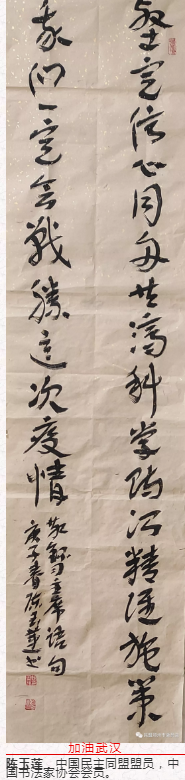 坚定信心同舟共濟科学防治精准施策
我们一定会戰勝这次疫情
敬録习主席语句
庚子春陈玉莲书
加油武汉
陈玉莲，中国民主同盟盟员，中
国书法家协会会员。